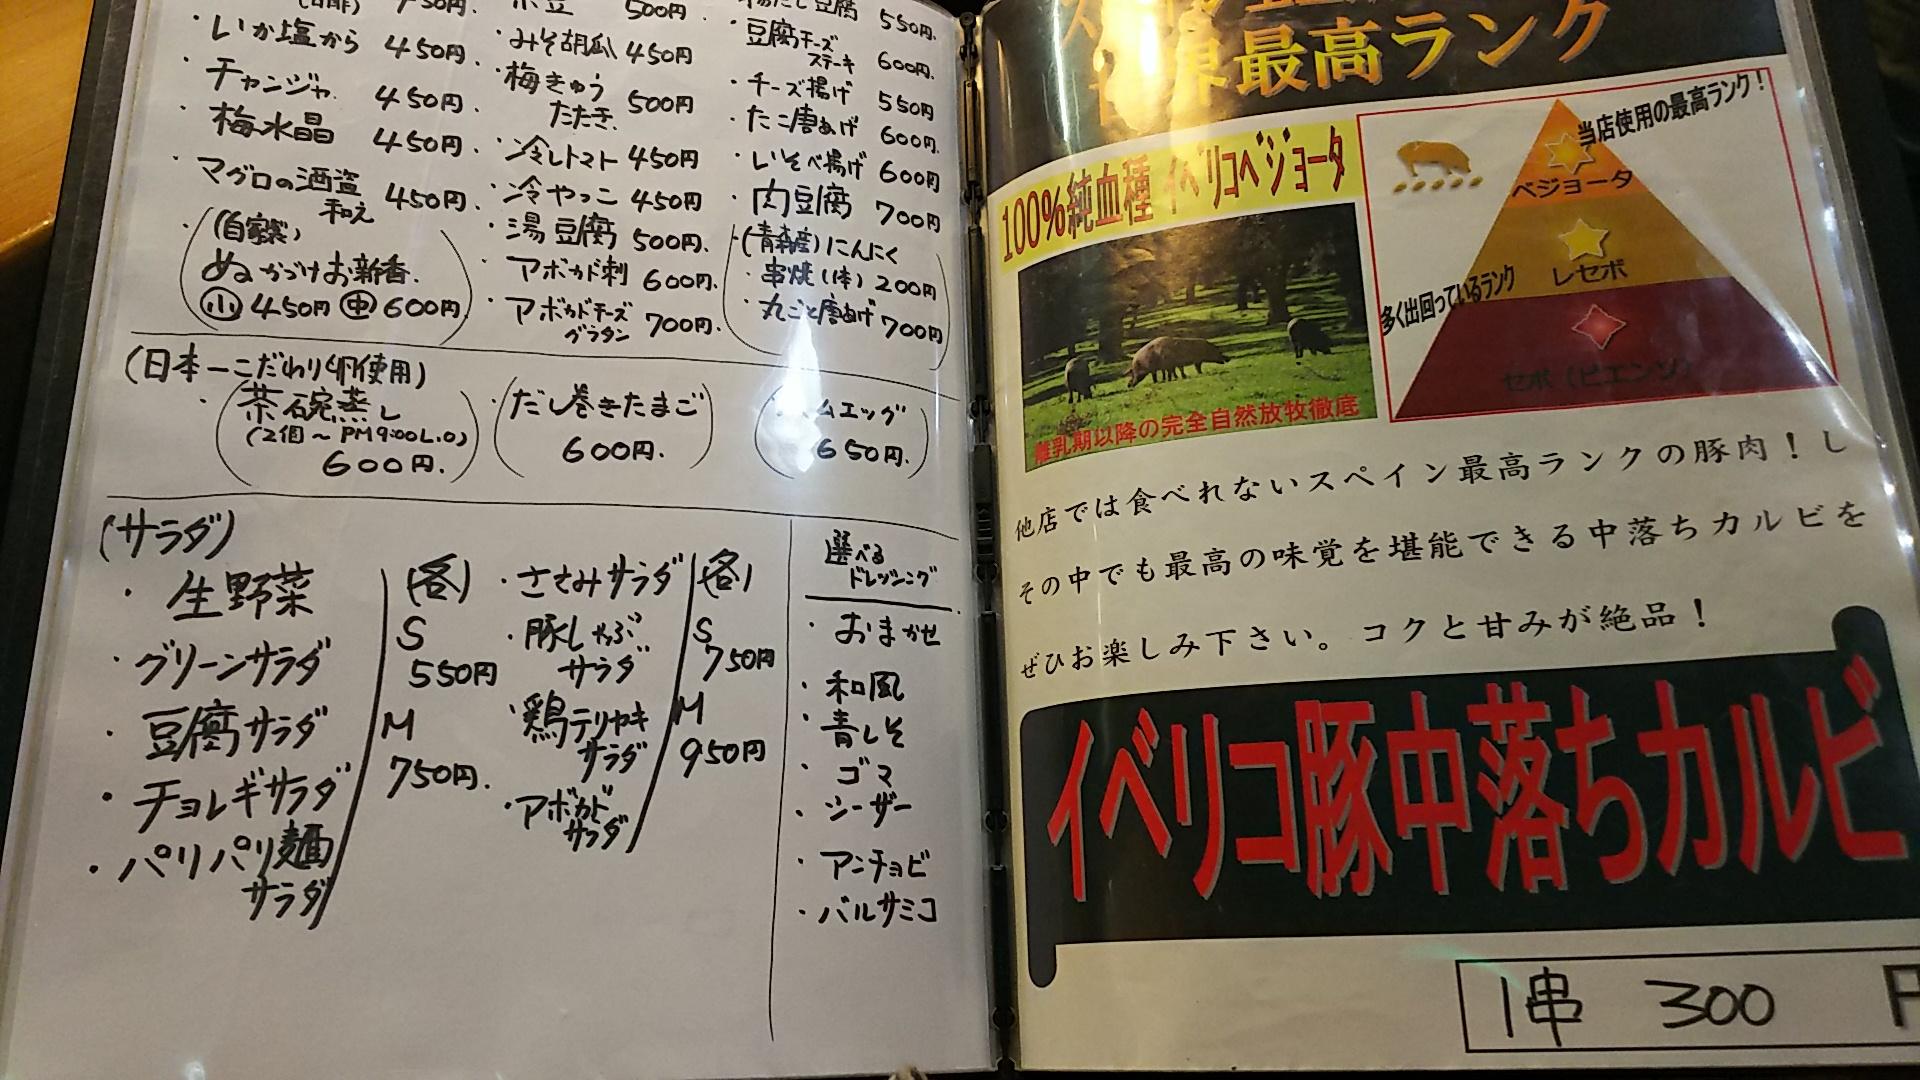 500円
・いか塩から 450円
・チャンジャ 450円
・梅水晶 450円
・マグロの酒盗
和え 450円
・(自家製)
ぬかづけお新香
小 450円 中 600円
・みそ胡瓜 450円
・梅きゅう
たたき 500円
・冷しトマト 450円
・冷やっこ 450円
・湯豆腐 500円
・アボカド刺 600円
・アボカドチーズ
グラタン 700円
豆腐 550円
・豆腐チーズ
ステーキ 600円
・チーズ揚げ 550円
・たこ唐あげ 600円
・いそべ揚げ 600円
・肉豆腐 700円
・(青森産)にんにく
・串焼(1本) 200円
・丸ごと唐あげ 700円
(日本一こだわり卵使用)
・茶碗蒸し
(2個〜PM9:00L.O)
600円
・だし巻きたまご
600円
ムエッグ
650円
(サラダ)
・生野菜
・グリーンサラダ
・豆腐サラダ
・チョレギサラダ
・パリパリ麺
サラダ
(各)
S
550円
M
750円
・ささみサラダ
・豚しゃぶ
サラダ
・鶏テリヤキ
サラダ
・アボカド
サラダ
(各)
S
750円
M
950円
選べる
ドレッシング
・おまかせ
・和風
・青しそ
・ゴマ
・シーザー
・アンチョビ
・バルサミコ
界最高ランク
100%純血種 イベリコベジョータ
離乳期以降の完全自然放牧徹底
当店使用の最高ランク!
ベジョータ
レセボ
多く出回っているランク
セボ(ピエンソ)
他店では食べれないスペイン最高ランクの豚肉!し
その中でも最高の味覚を堪能できる中落ちカルビを
ぜひお楽しみ下さい。コクと甘みが絶品!
イベリコ豚中落ちカルビ
1串 300 円